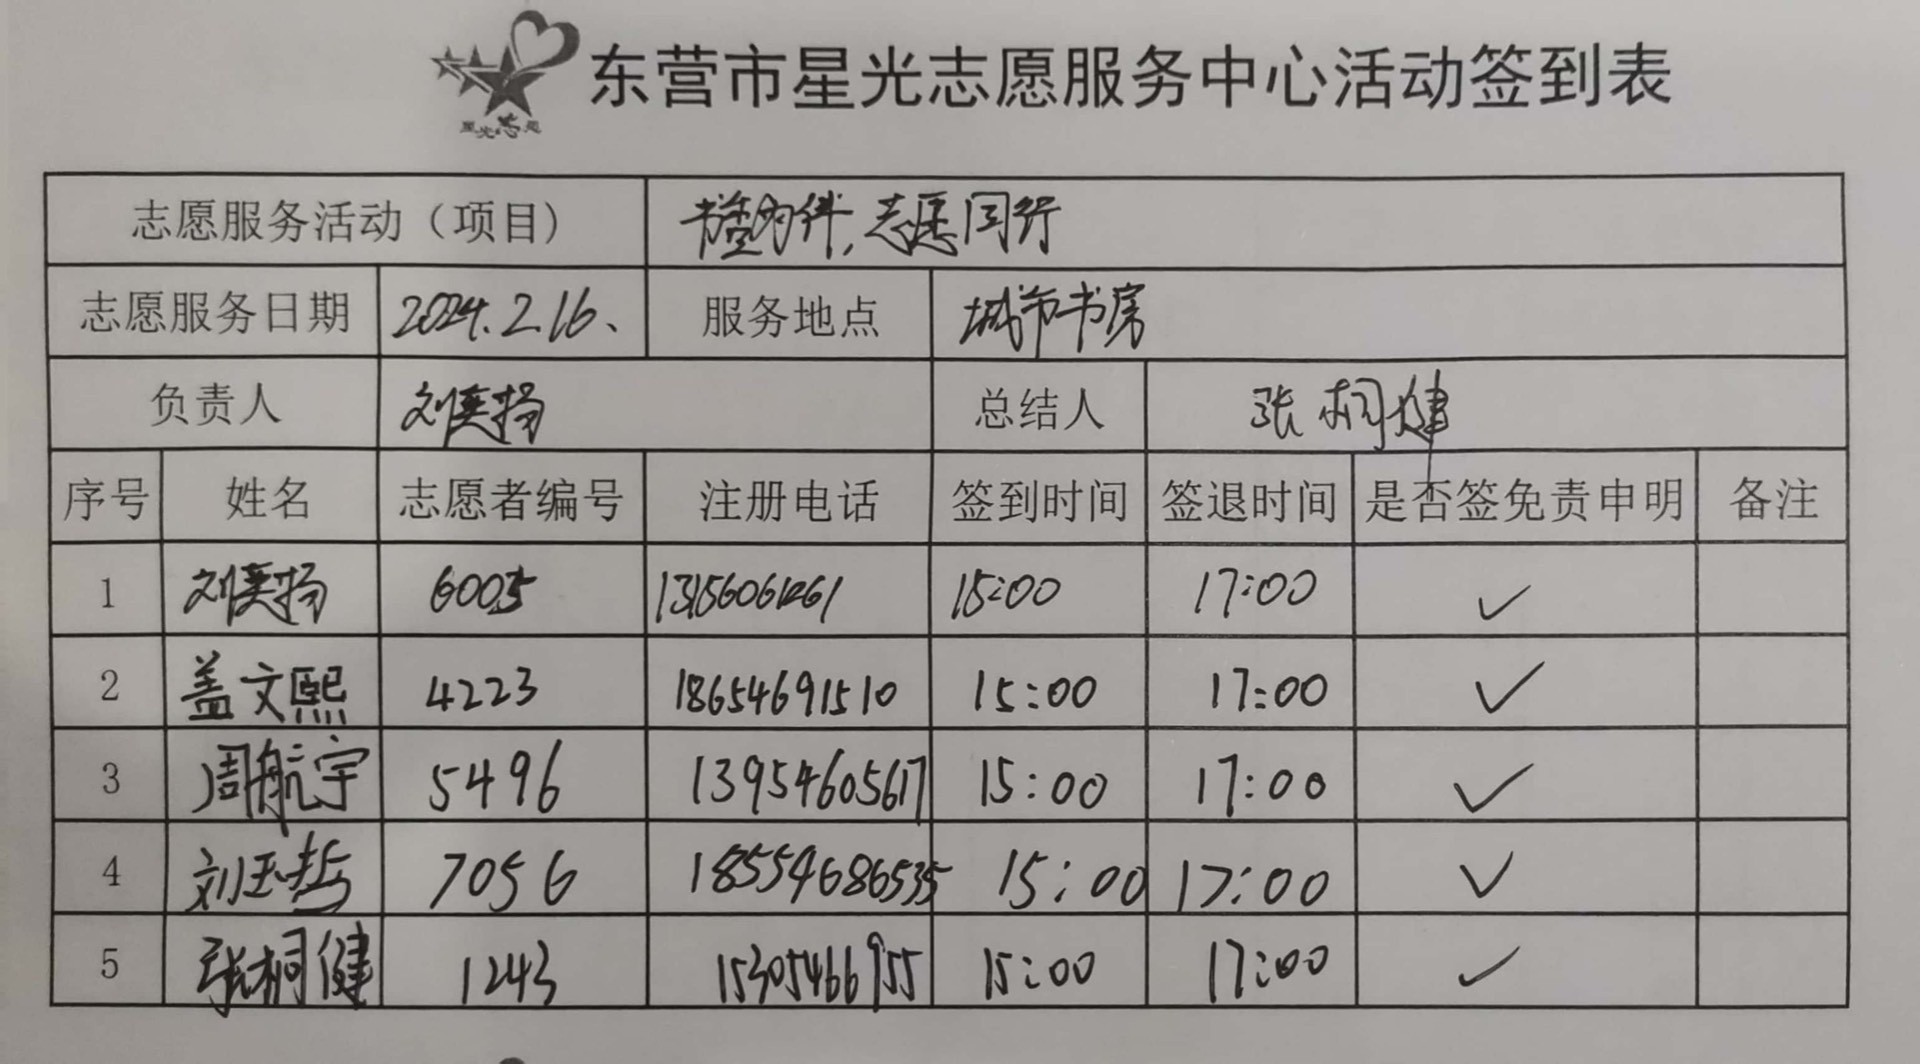 星光志愿
东营市星光志愿服务中心活动签到表
志愿服务活动（项目） 书香为伴,志愿同行
志愿服务日期 2024.2.16、 服务地点 城市书房
负责人 刘英扬 总结人 张桐健
序号 姓名 志愿者编号 注册电话 签到时间 签退时间 是否签免责申明 备注
1 刘英扬 6005 15:00 17:00 ✓
2 盖文熙 4223 18654691510 15:00 17:00 ✓
3 周航宇 5496 13954605617 15:00 17:00 ✓
4 刘玉哲 7056 18554686535 15:00 17:00 ✓
5 张桐健 1243 15305466955 15:00 17:00 ✓